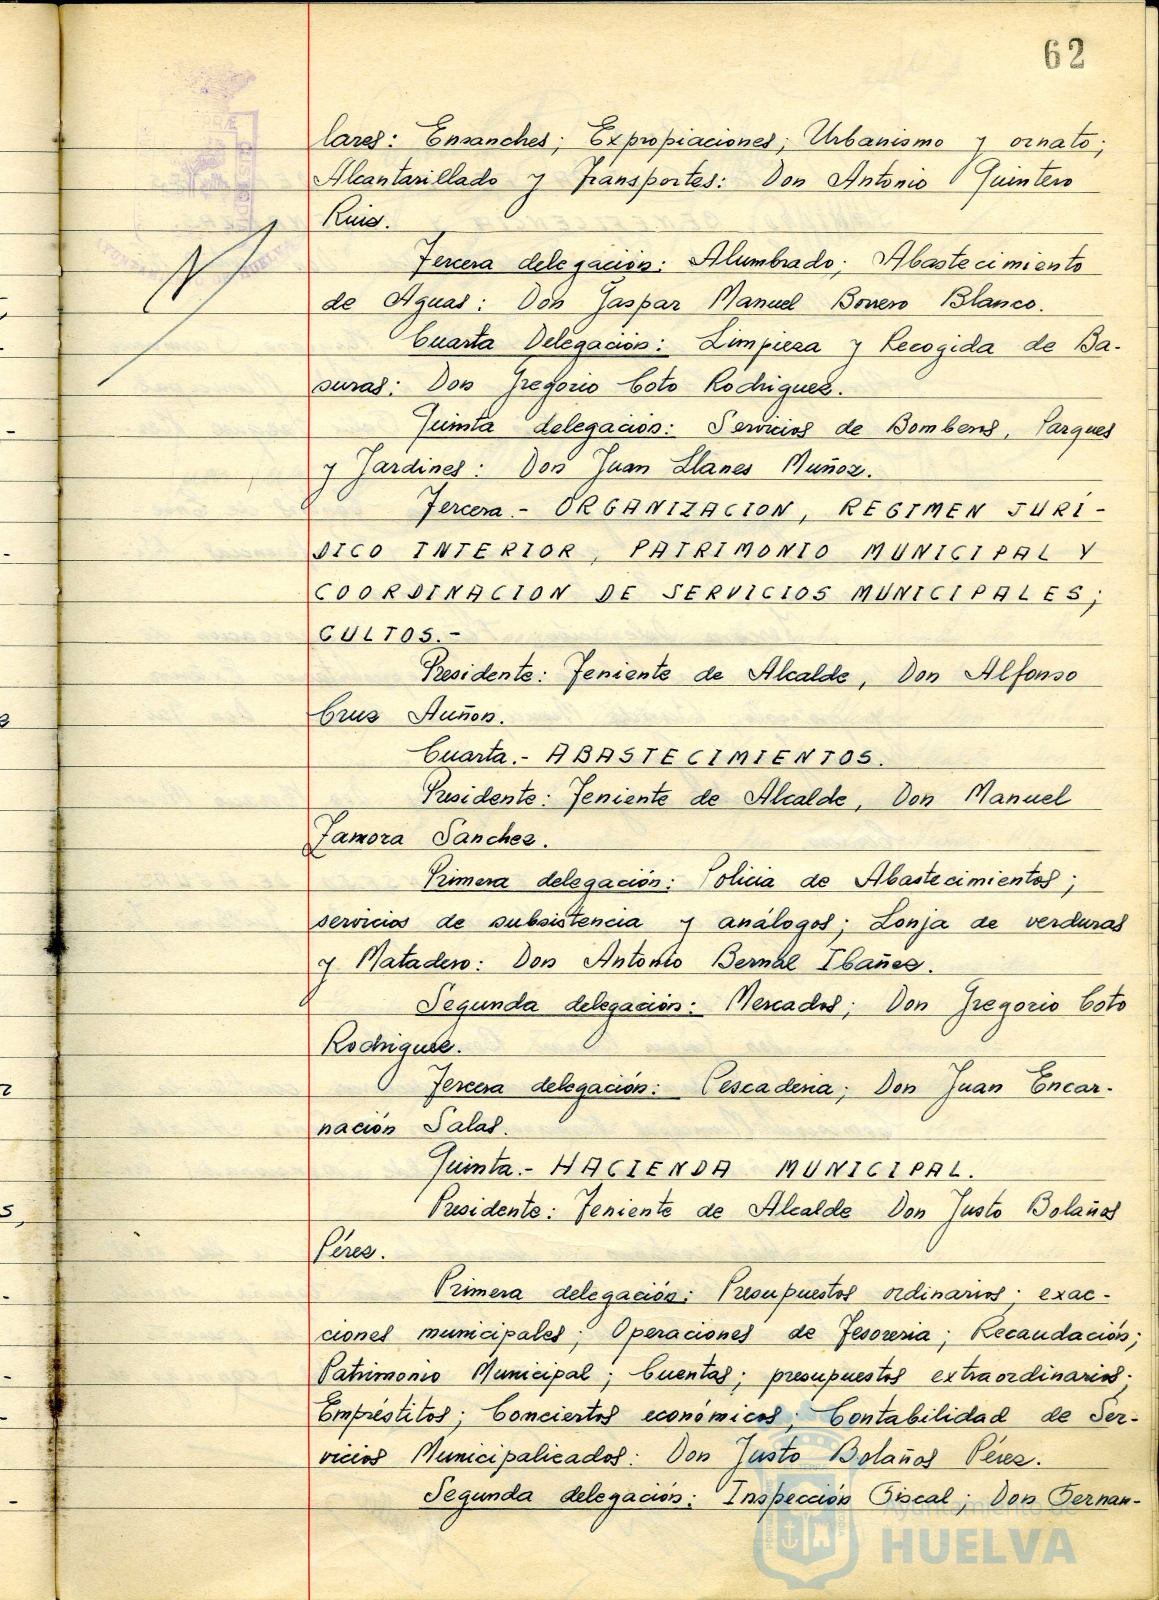 62
lares: Ensanches; Expropiaciones; Urbanismo y ornato;
Alcantarillado y Transportes: Don Antonio Quintero
Ruiz.
Tercera delegación: Alumbrado; Abastecimiento
de Aguas: Don Gaspar Manuel Borrero Blanco.
Cuarta Delegación: Limpieza y Recogida de Ba-
suras: Don Gregorio Coto Rodriguez.
Quinta delegación: Servicios de Bomberos, Parques
y Jardines: Don Juan Llanes Muñoz.
Tercera.- ORGANIZACION, REGIMEN JURÍ-
DICO INTERIOR, PATRIMONIO MUNICIPAL Y
COORDINACION DE SERVICIOS MUNICIPALES;
CULTOS.-
Presidente: Teniente de Alcalde, Don Alfonso
Cruz Auñon.
Cuarta.- ABASTECIMIENTOS.
Presidente: Teniente de Alcalde, Don Manuel
Zamora Sanchez.
Primera delegación: Policia de Abastecimientos;
servicios de subsistencia y análogos; Lonja de verduras
y Matadero: Don Antonio Bernal Ibañez.
Segunda delegación: Mercados; Don Gregorio Coto
Rodriguez.
Tercera delegación: Pescaderia; Don Juan Encar-
nación Salas.
Quinta.- HACIENDA MUNICIPAL.
Presidente: Teniente de Alcalde Don Justo Bolaños
Pérez.
Primera delegación: Presupuestos ordinarios; exac-
ciones municipales; Operaciones de Tesoreria; Recaudación;
Patrimonio Municipal; Cuentas; presupuestos extraordinarios;
Empréstitos; Conciertos económicos; Contabilidad de Ser-
vicios Municipalizados: Don Justo Bolaños Pérez.
Segunda delegación: Inspección Fiscal; Don Fernan-
Ayuntamiento de
HUELVA